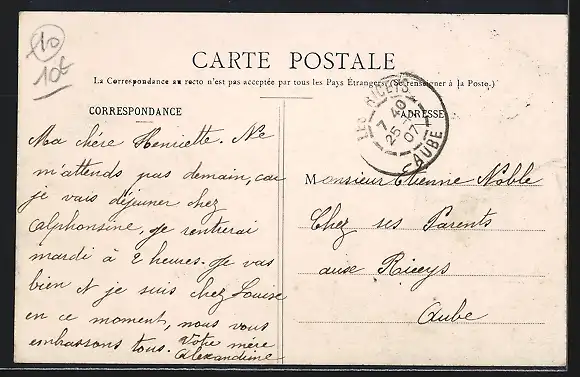 10
10€
CARTE POSTALE
La Correspondance au recto n'est pas acceptée par tous les Pays Étrangers (Se renseigner à la Poste.)
CORRESPONDANCE
Ma chére Henriette. Ne
m'attends pas demain, car
je vais déjeuner chez
Calphonsine, je rentrerai
mardi à 2 heures. Je vas
bien et je suis chez Louise
en ce moment, nous vous
embrassons tous. Votre mère
Alexandrine
LES RICEYS
7 40
25
07
AUBE
ADRESSE
Monsieur Etienne Noble
Chez ses Parents
aux Riceys
Aube